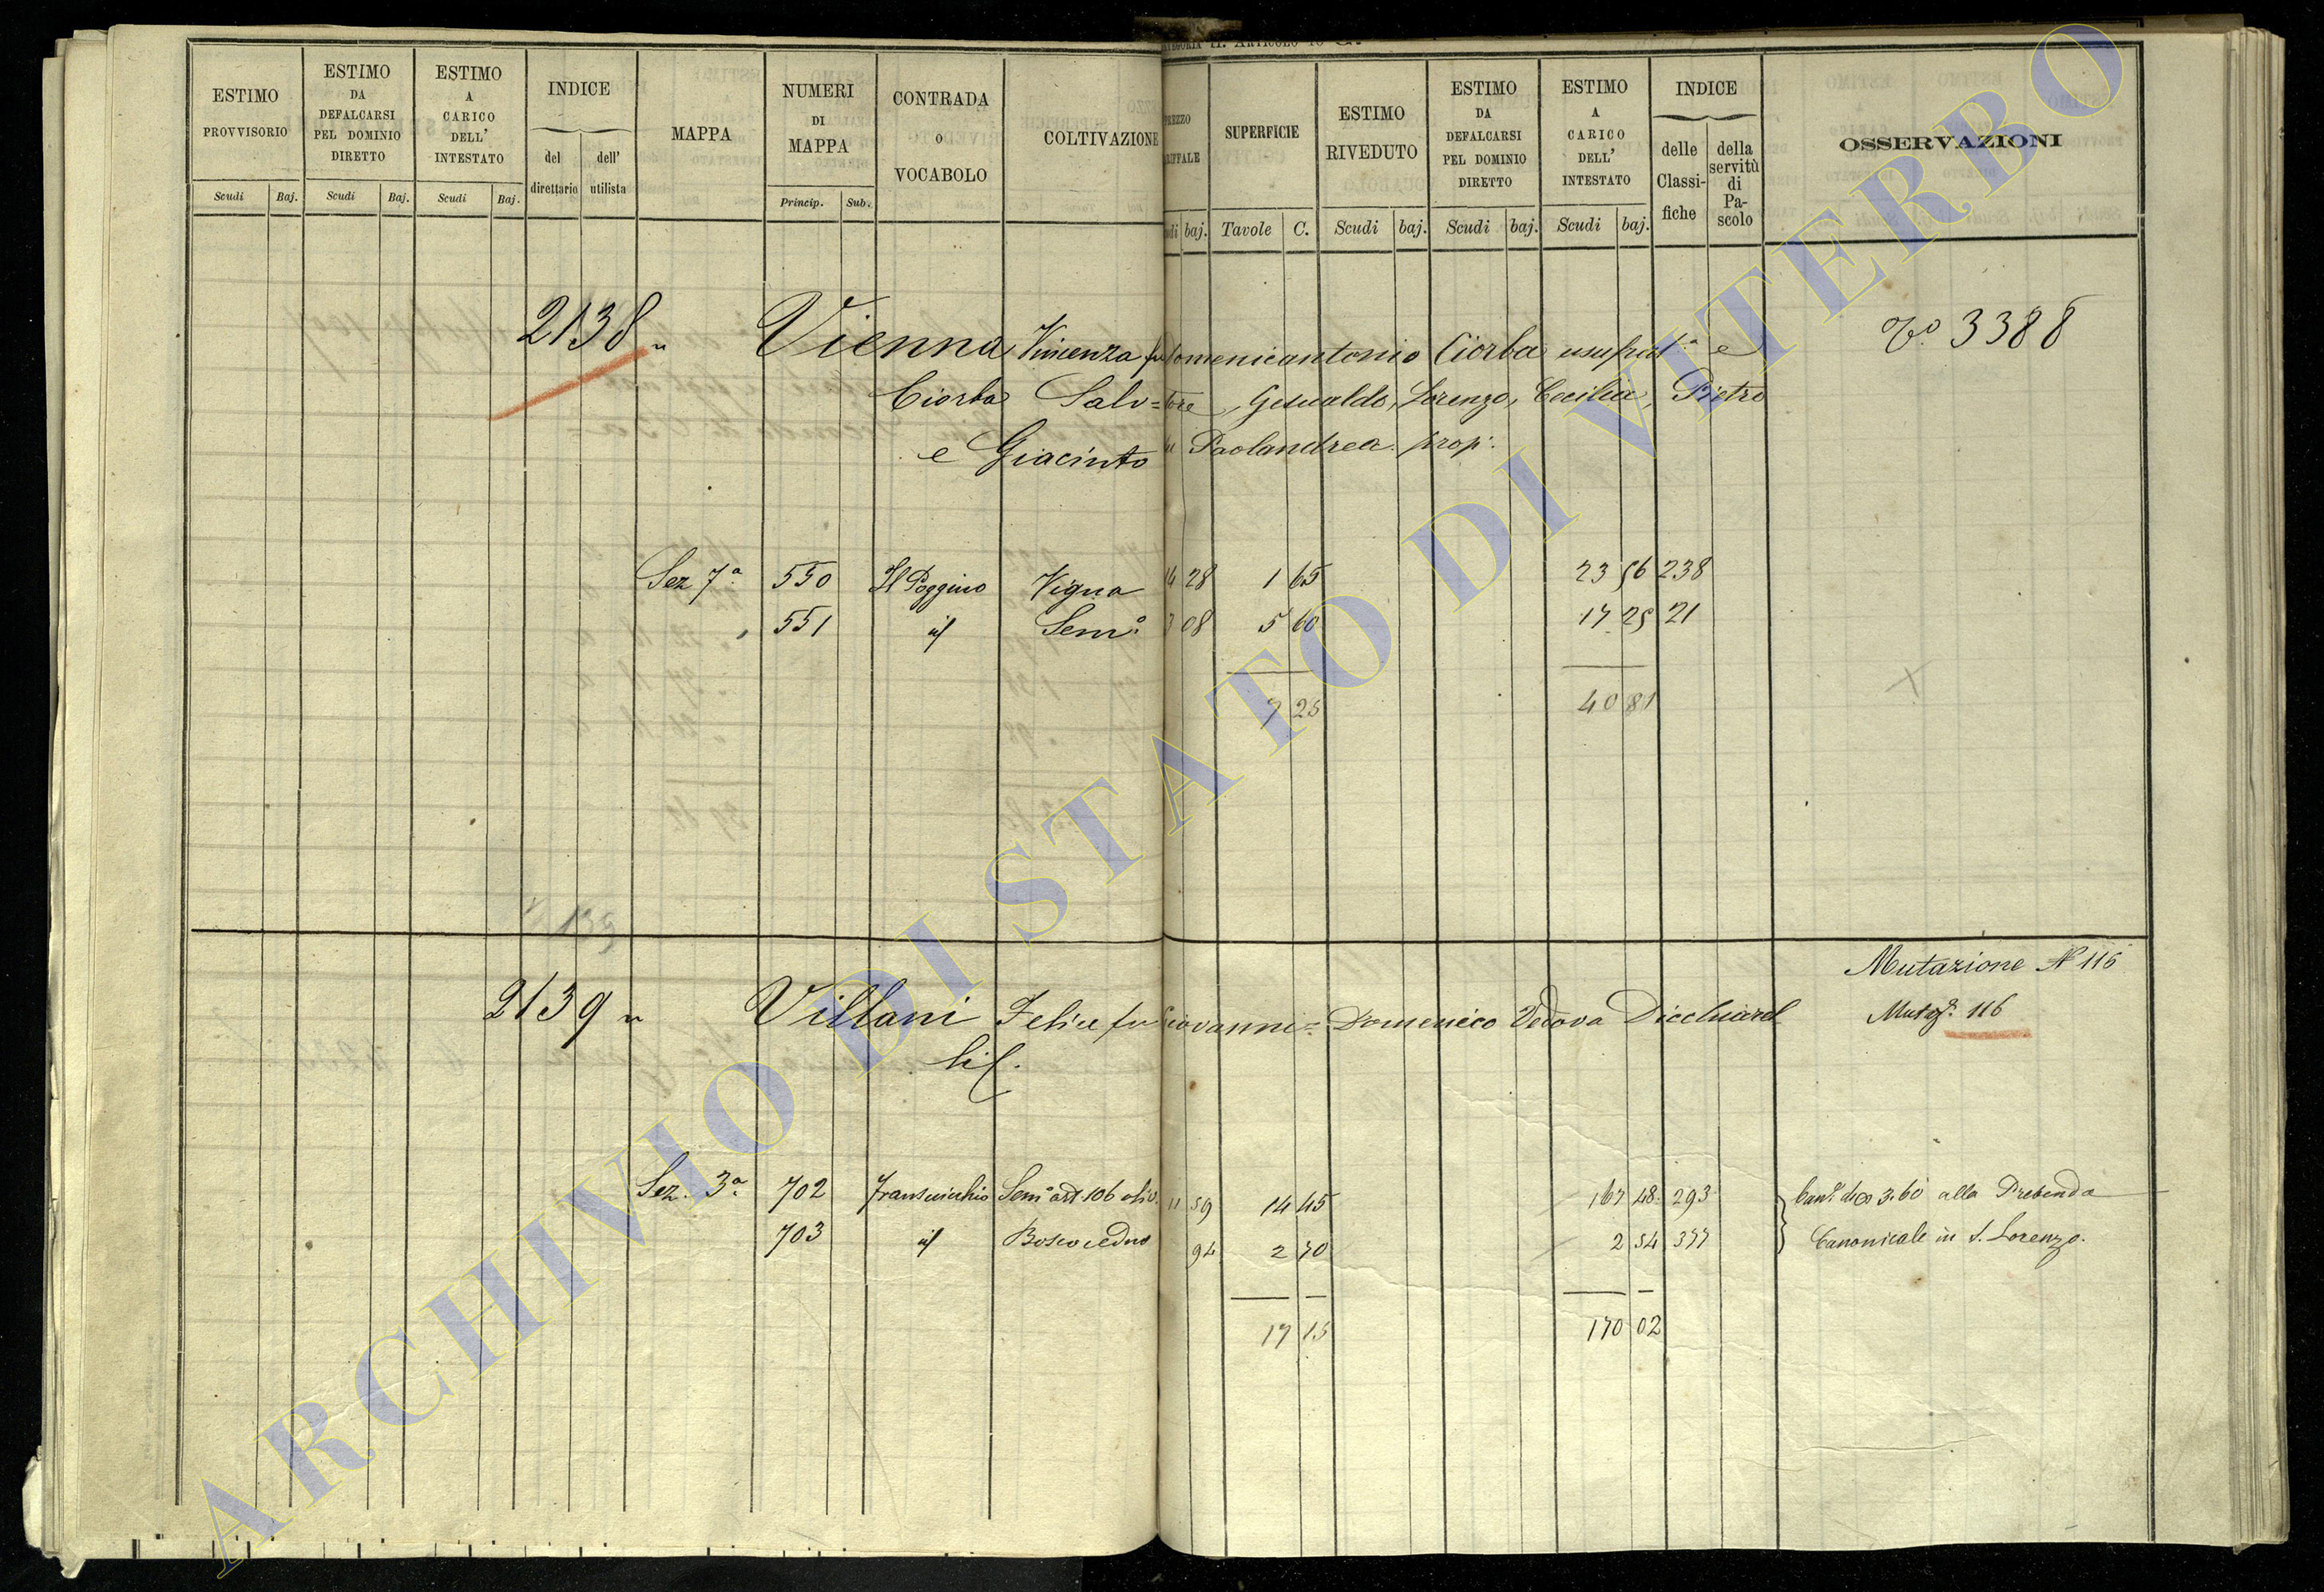 ESTIMO PROVVISORIO
ESTIMO DA DEFALCARSI PEL DOMINIO DIRETTO
ESTIMO A CARICO DELL' INTESTATO
INDICE
del direttario
dell' utilista
MAPPA
NUMERI DI MAPPA
CONTRADA o VOCABOLO
COLTIVAZIONE
SUPERFICIE
ESTIMO RIVEDUTO
ESTIMO DA DEFALCARSI PEL DOMINIO DIRETTO
ESTIMO A CARICO DELL' INTESTATO
INDICE
delle Classi-fiche
della servitù di Pa-scolo
OSSERVAZIONI
Scudi Baj. Scudi Baj. Scudi Baj. Princip. Sub. baj. Tavole C. Scudi baj. Scudi baj. Scudi baj.
2138 Vienna Vincenza fu Domenicantonio Ciorba usufrutt.a e 3388
Ciorba Salv=tore, Gesualdo, Lorenzo, Cecilia, Pietro
e Giacinto Paolandrea prop.
Sez 7a 550 Il Poggino Vigna 28 1 65 23 56 238
551 id Sem.o 08 5 60 17 25 21
7 25 40 81
139
Mutazione N 116
2139 Villani Felice fu Giovanni= Domenico Vedova Mutaz. 116
Sez. 3a 702 Sem.o 106 oliv. 11 59 14 45 167 48 293 3.60 alla Prebenda
703 id Bosco ceduo 94 2 70 2 54 377 Canonicale in S. Lorenzo.
17 15 170 02
ARCHIVIO DI STATO DI VITERBO